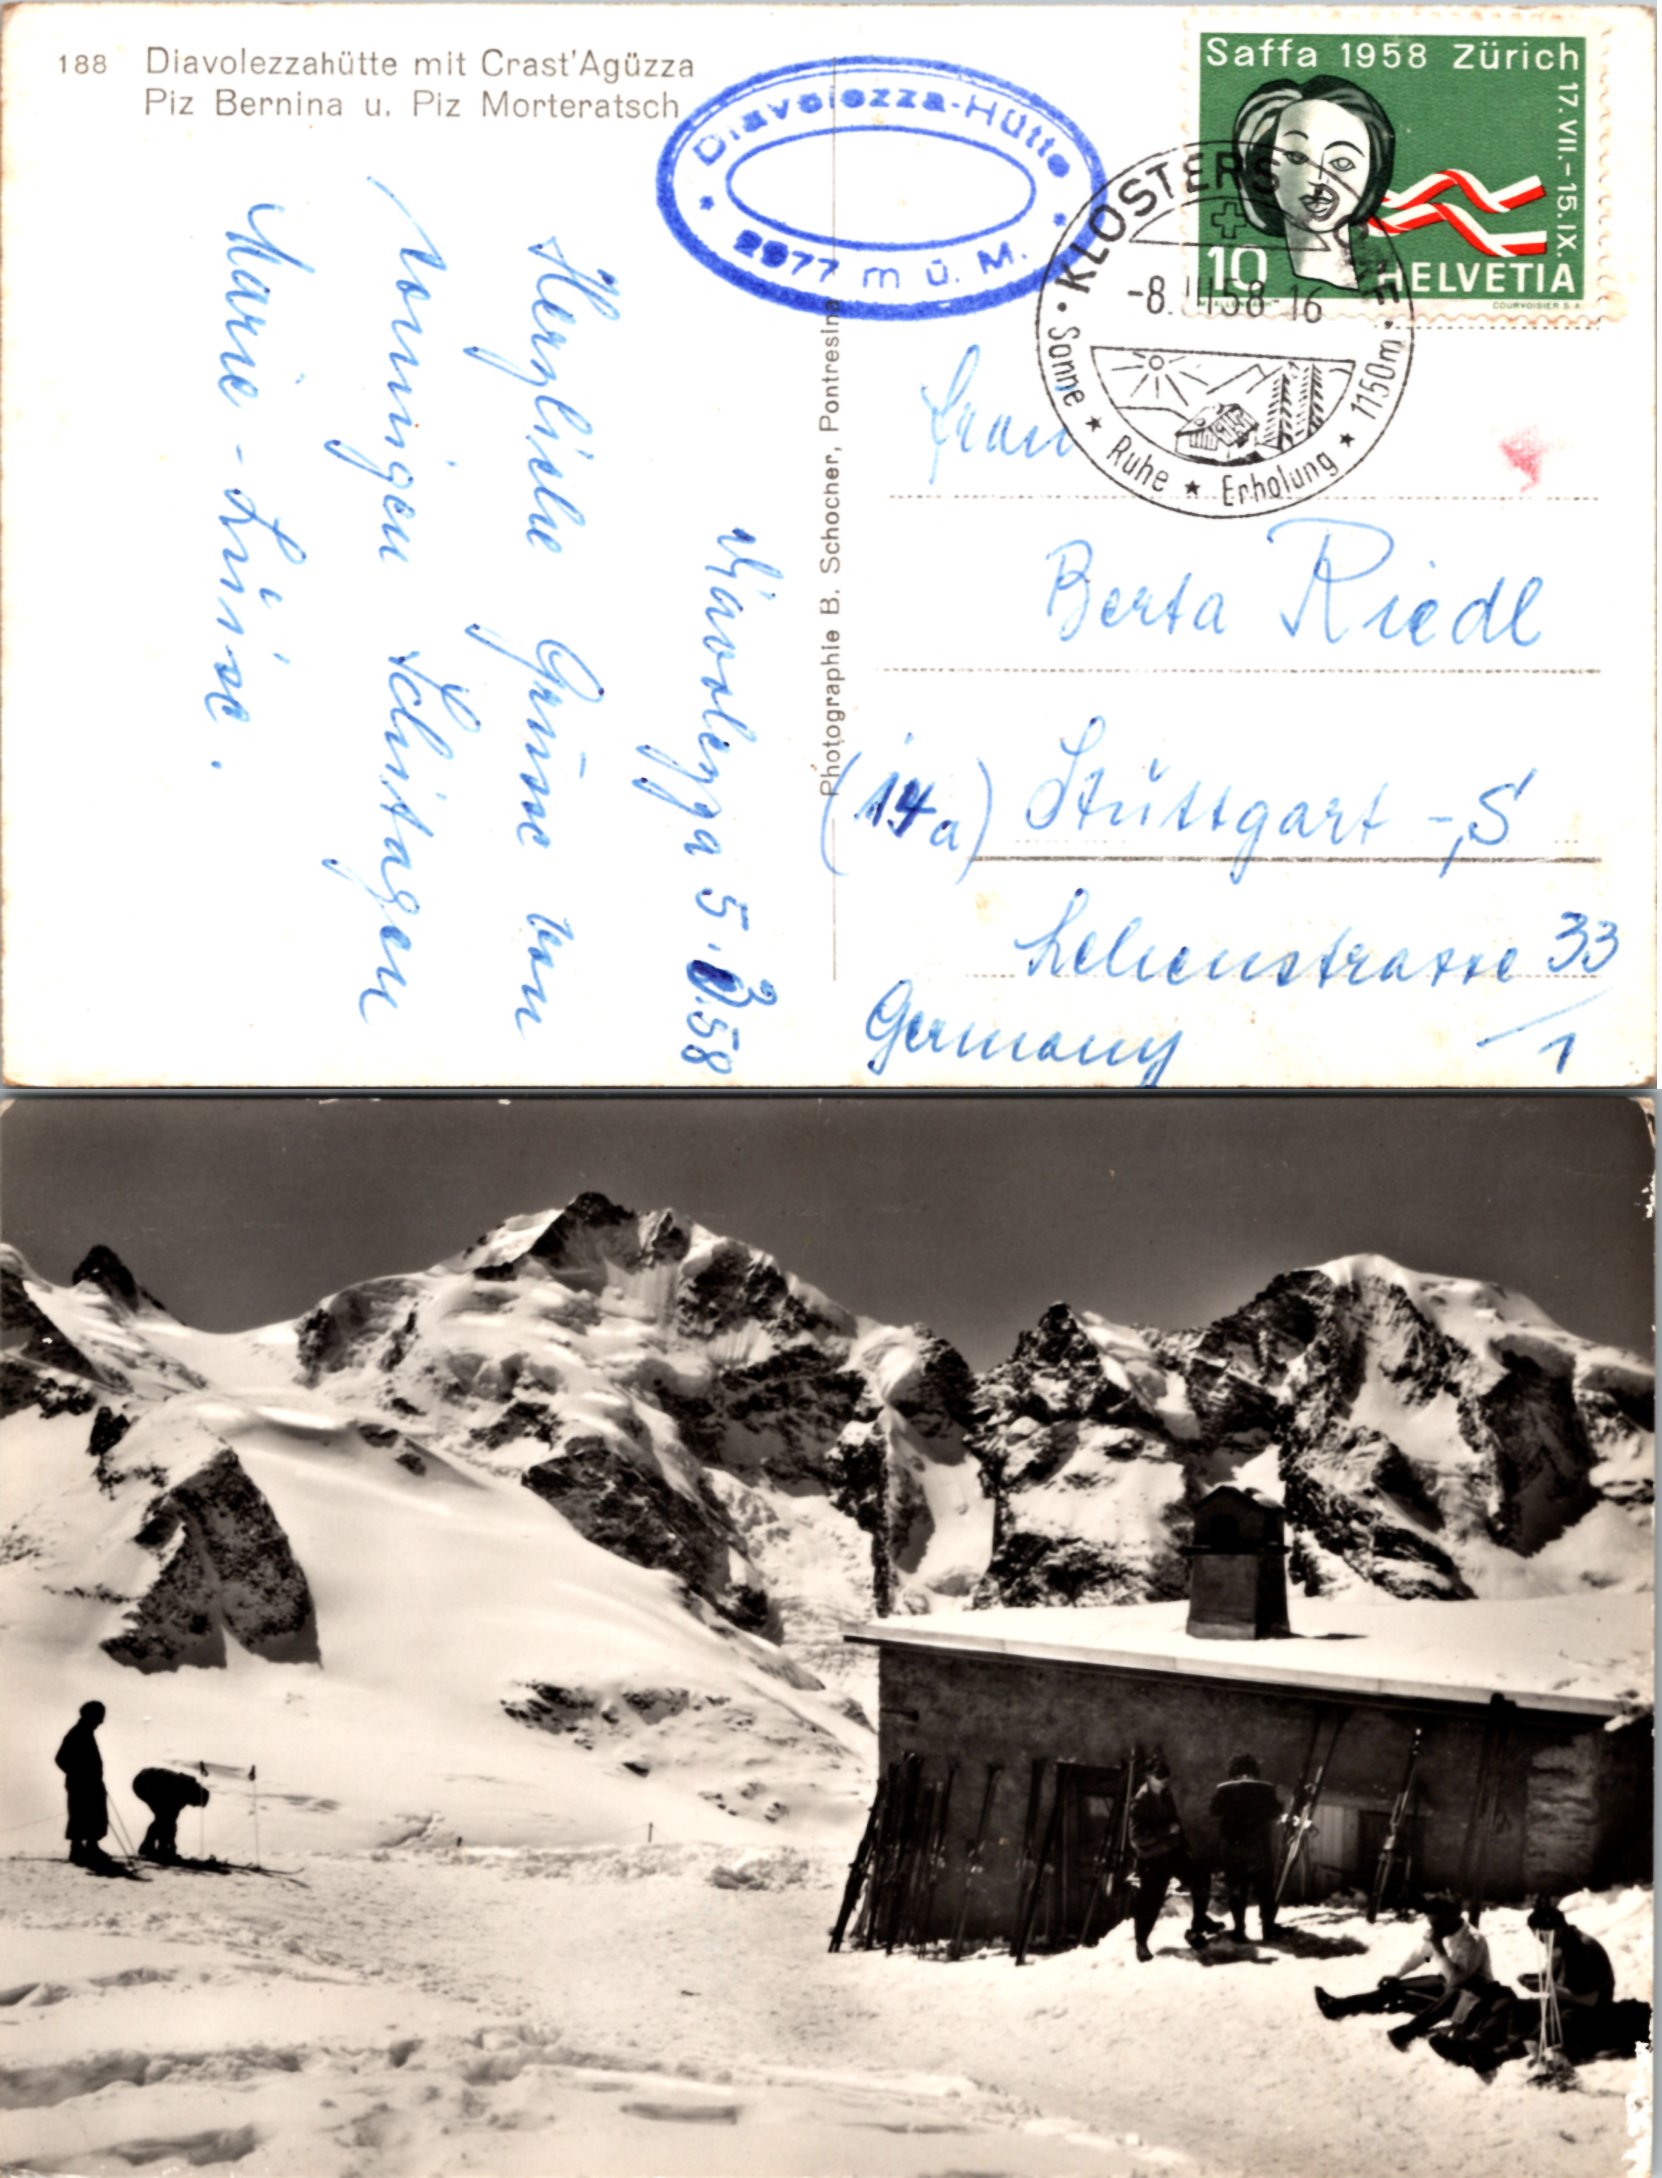 188 Diavolezzahütte mit Crast'Agüzza
Piz Bernina u. Piz Morteratsch
Diavolezza-Hütte
2977 m ü. M.
Saffa 1958 Zürich
17.VII.-15.IX.
10
HELVETIA
COURVOISIER S.A.
KLOSTERS DORF
-8.III58-16
Sonne ★ Ruhe ★ Erholung ★ 1150m
Photographie B. Schocher, Pontresina
Diavolezza 5.3.58
Herzliche Grüsse von
sonnigen Schitagen
Marie-Luise.
Frau
Berta Riedl
(14a) Stuttgart-S
Lehenstrasse 33
Germany
/1